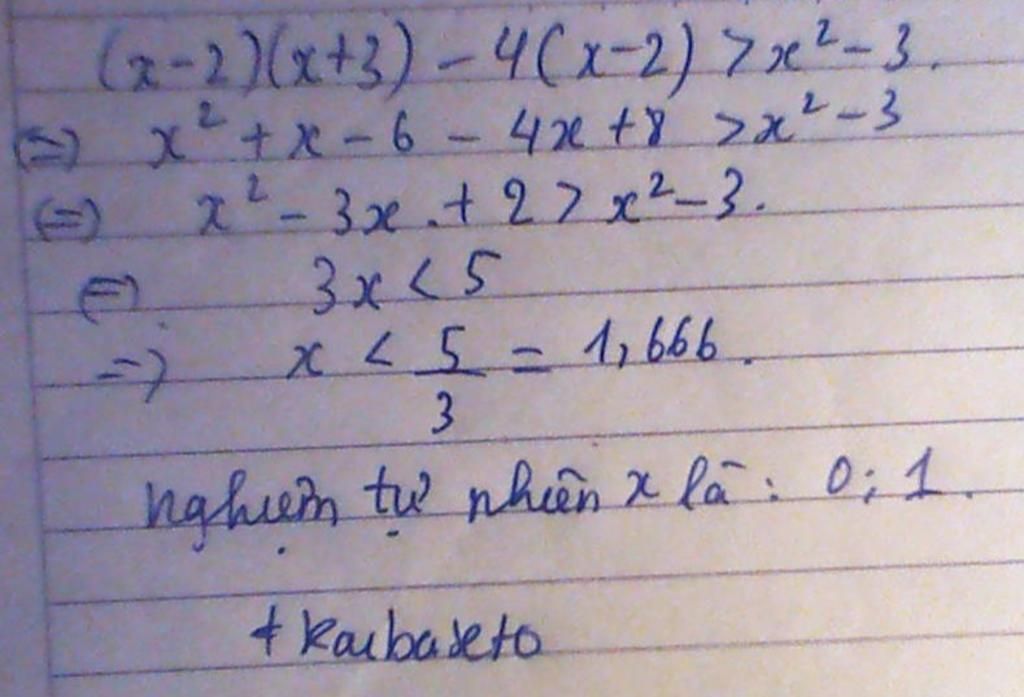 (x-2)(x+3) - 4(x-2) > x² - 3.
(=) x² + x - 6 - 4x + 8 > x² - 3
(=) x² - 3x + 2 > x² - 3.
(=) 3x < 5
=) x < 5/3 = 1,666.
nghiệm tự nhiên x là : 0; 1.